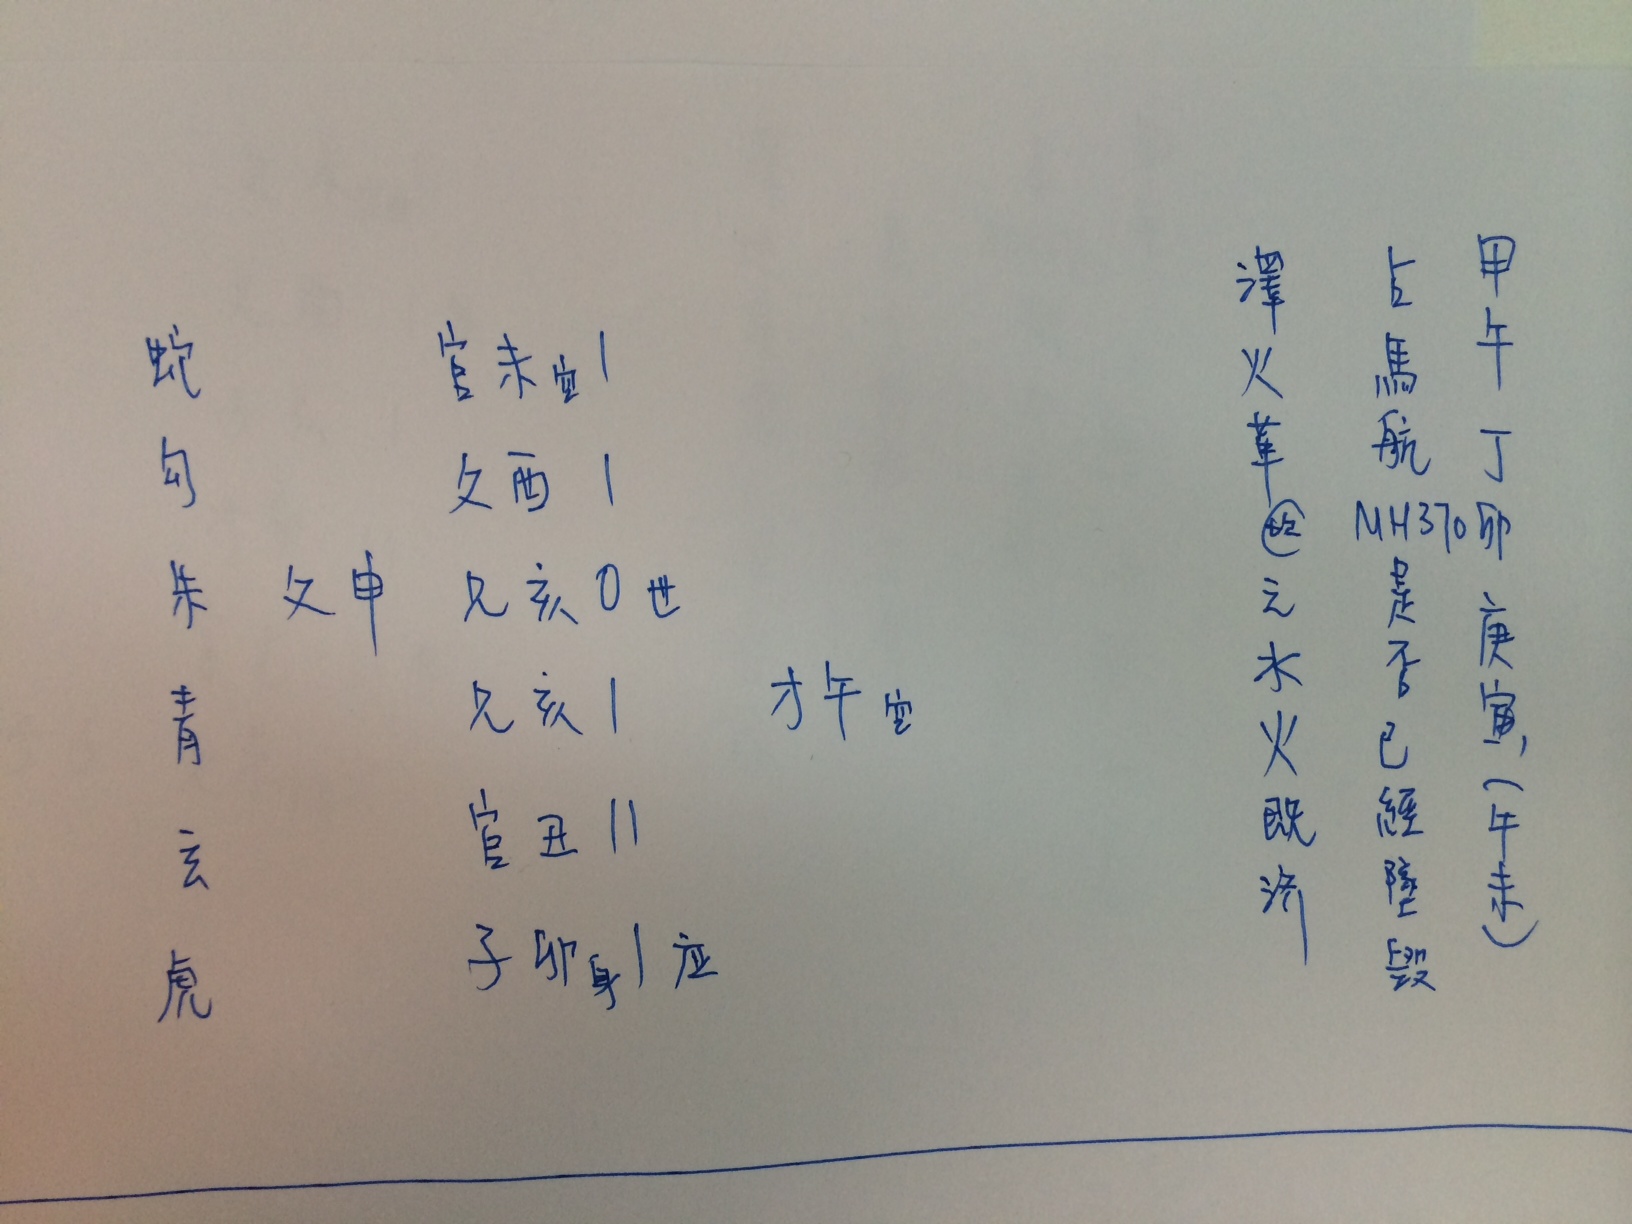 甲午丁卯庚寅,(午未)
占馬航MH370是否已經墜毀
澤火革㊉之水火既济
蛇 官未空 |
勾 父酉 |
朱 父申 兄亥 0 世
青 兄亥 | 才午空
玄 官丑 ||
虎 子卯身 | 应